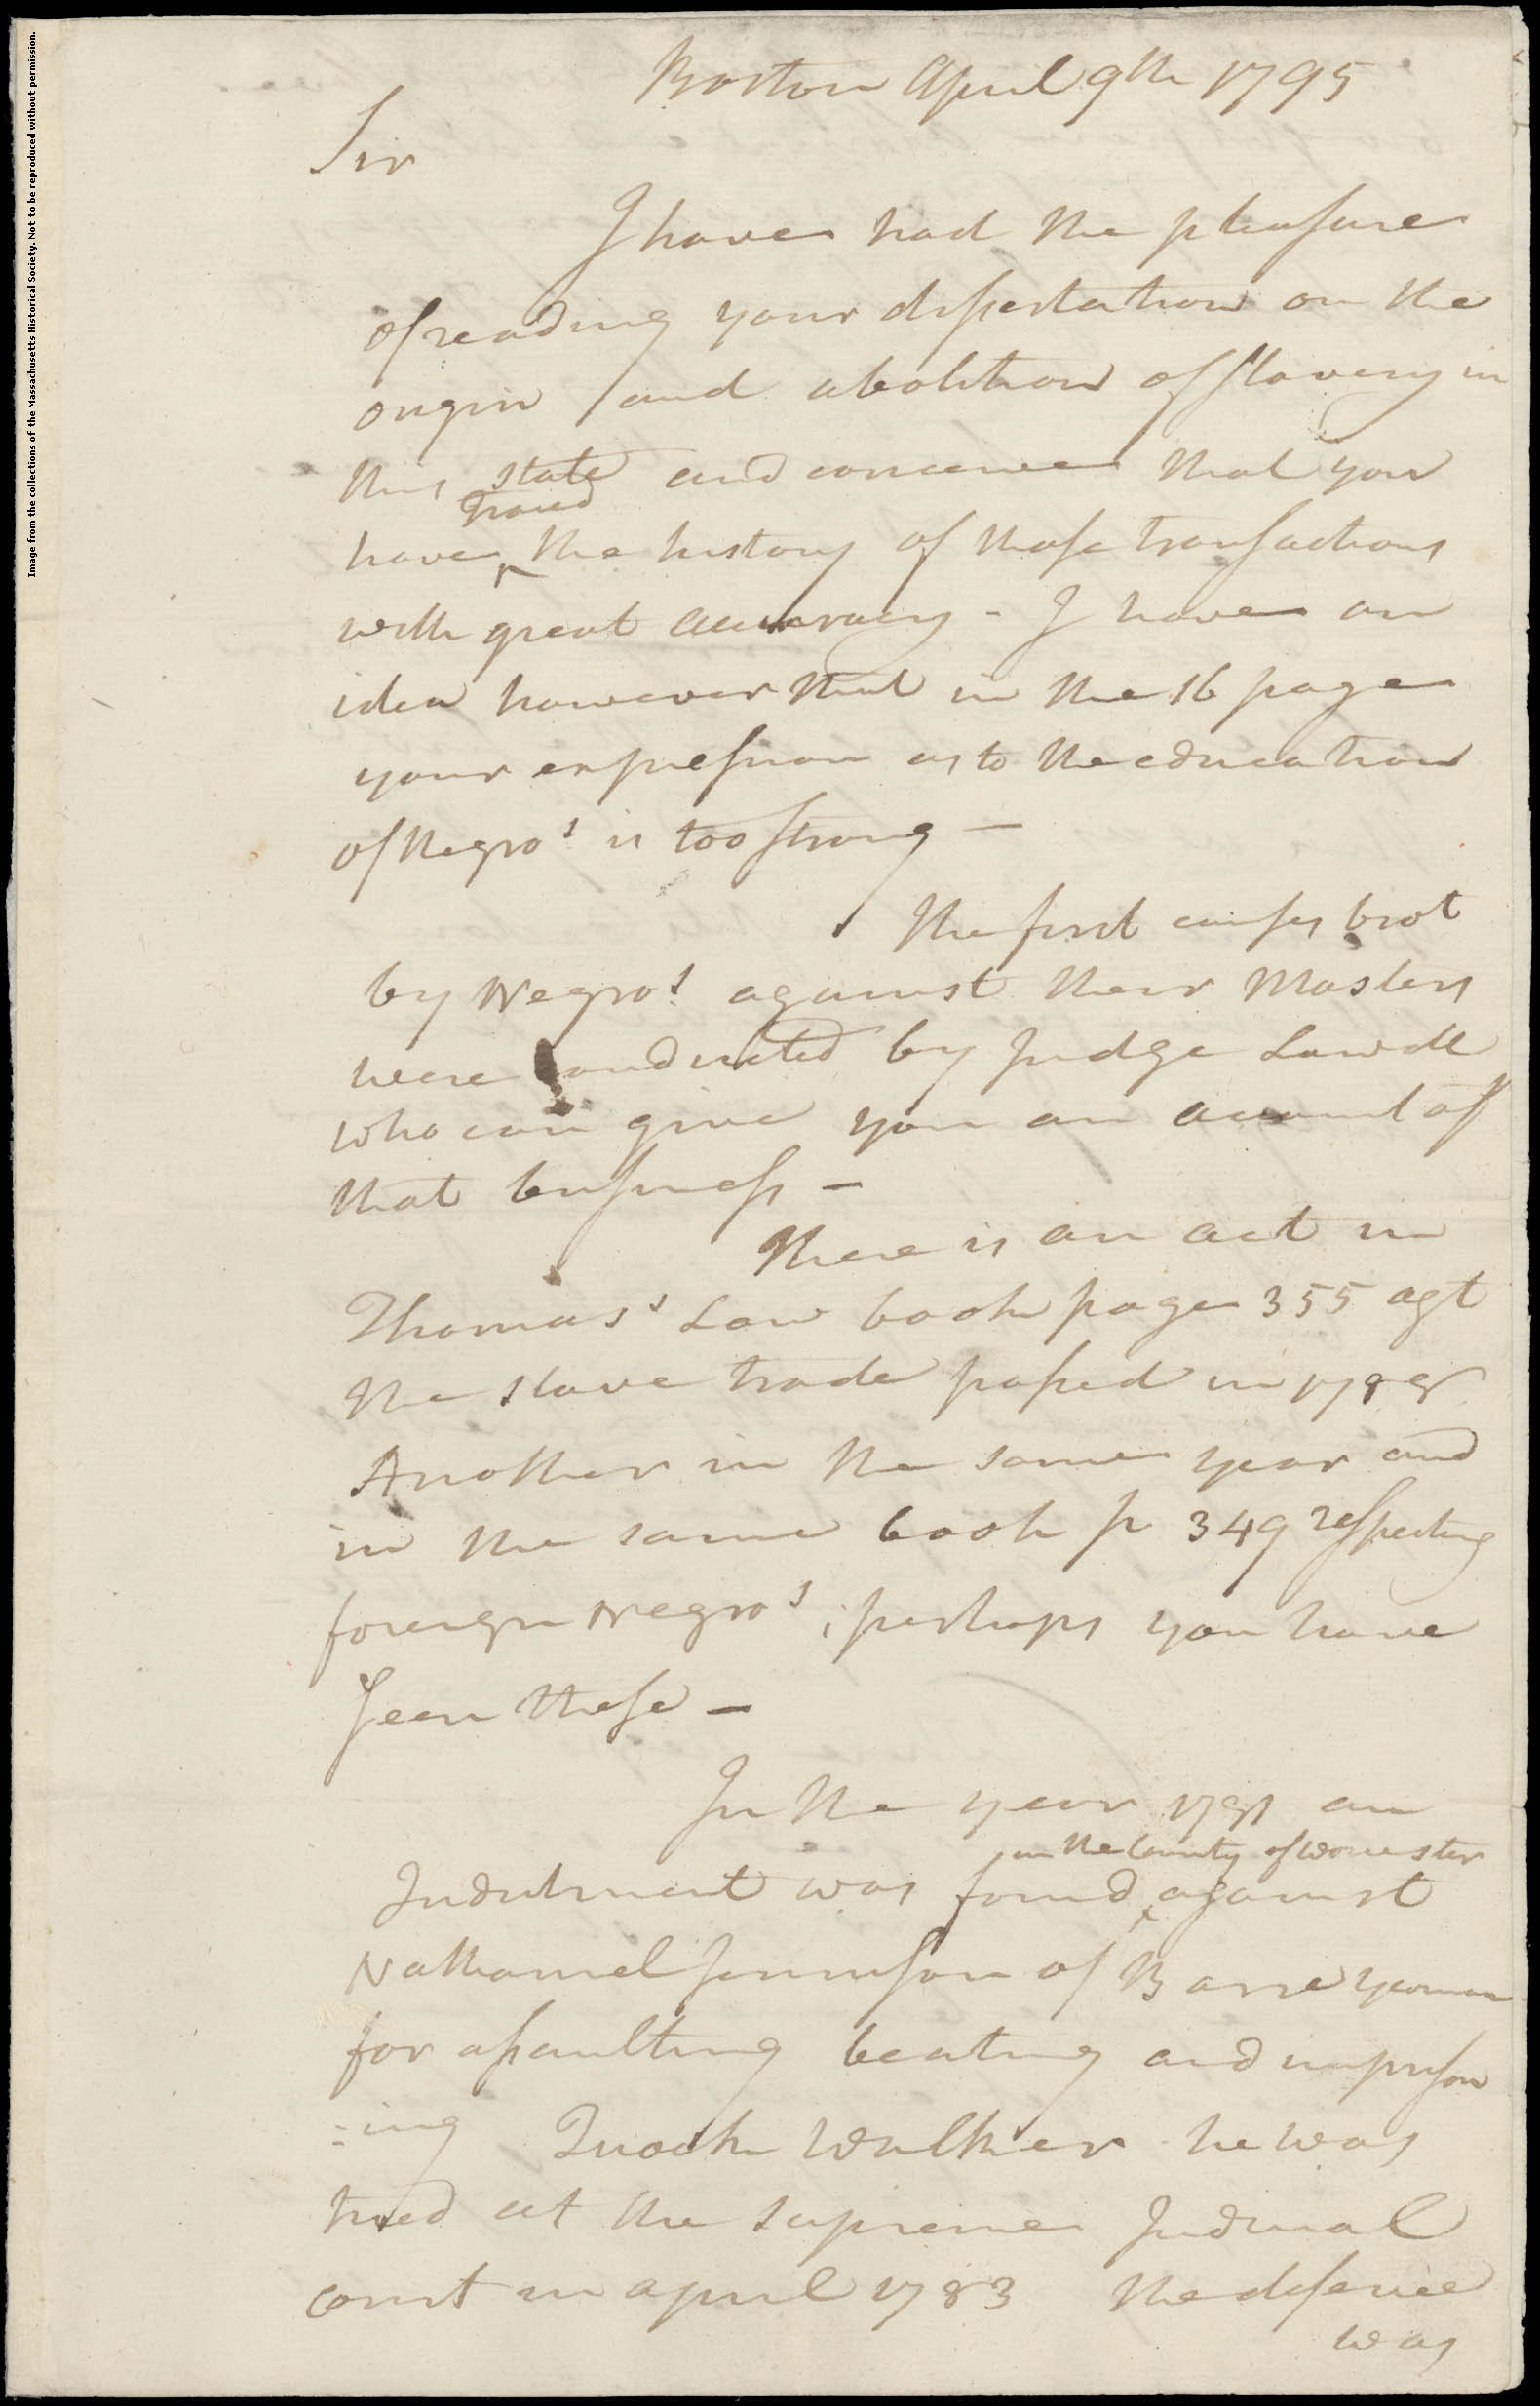 Image from the collections of the Massachusetts Historical Society. Not to be reproduced without permission.
Boston April 9th 1795
Sir
I have had the pleasure
of reading your dissertation on the
origin and abolition of slavery in
this state and conceive that you
traced
have ^ the history of those transactions
with great accuracy - I have an
idea however that in the 16 page
your expression as to the education
of Negro's is too strong —
The first causes brot
by Negro's against their Masters
were conducted by Judge Lowell
who can give you an account of
that business —
There is an act in
Thomas's Law book page 355 agt
the slave trade passed in 1788
Another in the same year and
in the same book p 349 respecting
foreign Negro's; perhaps you have
seen these —
In the year 1781 an
in the County of Worcester
Indictment was found ^ against
Nathaniel Jennison of Barre yeoman
for assaulting beating and imprison
:ing Quock Walker he was
tried at the supreme Judicial
court in april 1783 The defence
was